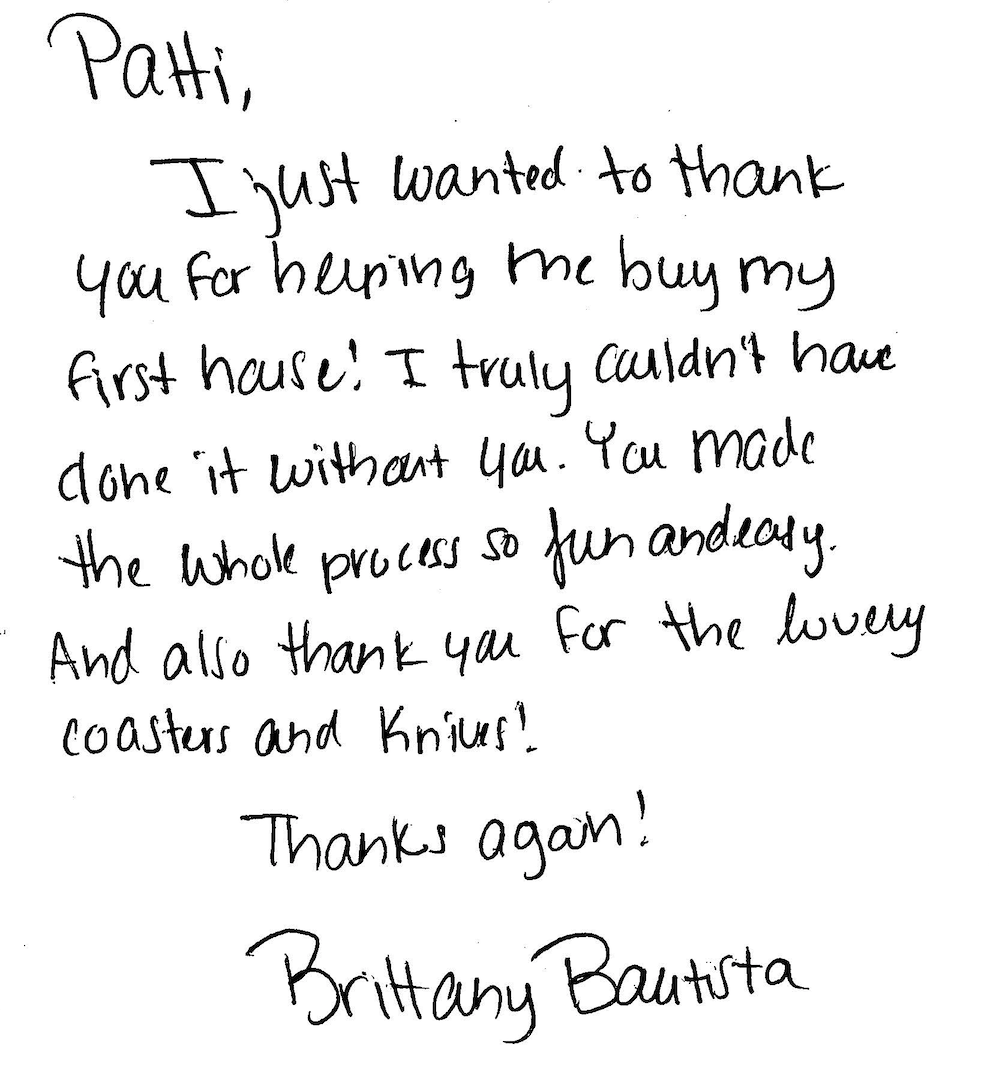 Patti,
I just wanted to thank
you for helping me buy my
first house! I truly couldn't have
done it without you. You made
the whole process so fun and easy.
And also thank you for the lovely
coasters and knives!
Thanks again!
Brittany Bautista